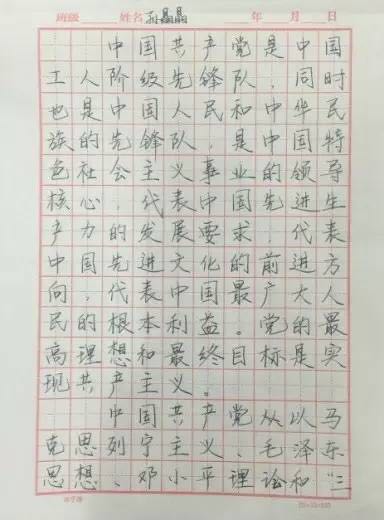 班级 姓名 孙晶晶 年 月 日
中国共产党是中国
工人阶级先锋队,同时
也是中国人民和中华民
族的先锋队,是中国特
色社会主义事业的领导
核心,代表中国先进生
产力的发展要求,代表
中国先进文化的前进方
向,代表中国最广大人
民的根本利益。党的最
高理想和最终目标是实
现共产主义。
中国共产党从以马
克思列宁主义、毛泽东
思想、邓小平理论和“三